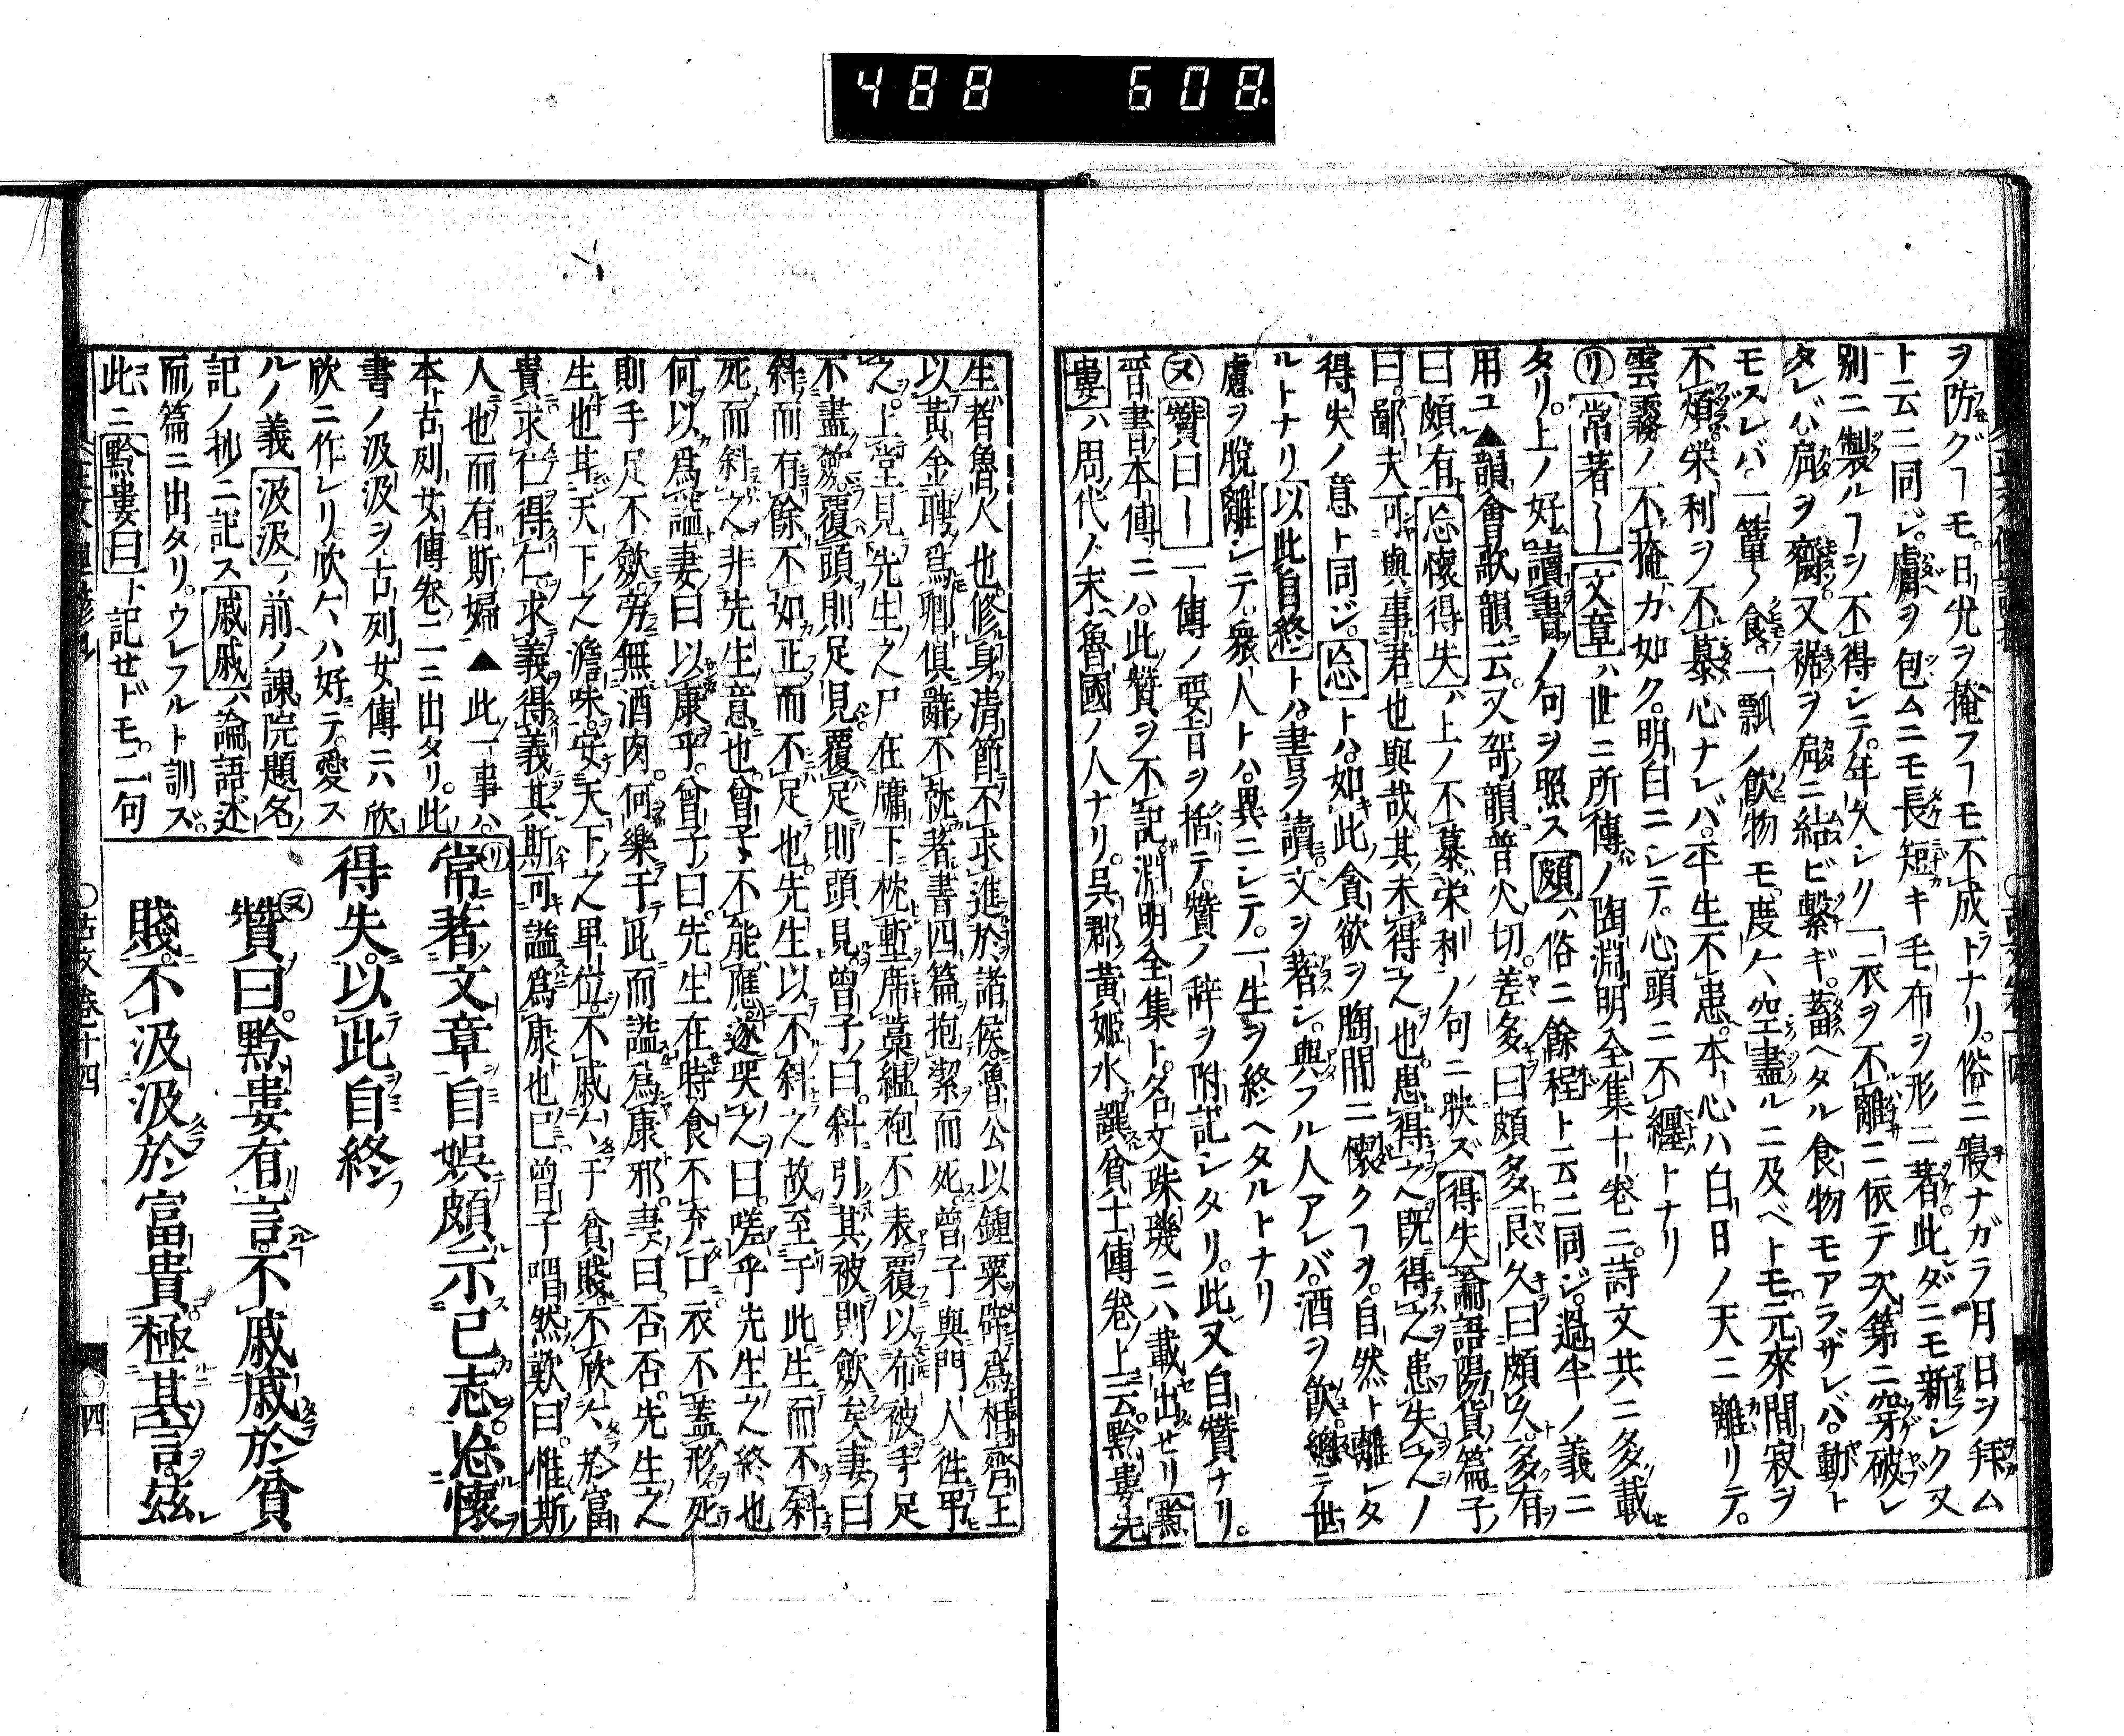 488 608.
ヲ防グヿモ。日光ヲ掩フヿモ不成トナリ。俗ニ寢ナガラ月日ヲ拜ム
ト云ニ同ジ。膚ヲ包ムニモ長短キ毛布ヲ形ニ著。此ダニモ新シク又
別ニ製ルヿヲ不得シテ。年久シク一衣ヲ不離ニ依テ次第ニ穿破レ
タレバ肩ヲ齊又裾ヲ肩ニ結ビ繫ギ。蓄ヘタル食物モアラザレバ。動ト
モスレバ一簞ノ食。一瓢ノ飮物モ度々空盡ルニ及ベトモ。元來閒寂ヲ
不煩。栄利ヲ不慕心ナレバ。平生不患。本心ハ白日ノ天ニ離リテ。
雲霧ノ不掩カ如ク。明白ニシテ。心頭ニ不纏トナリ
㋷常著〡文章ハ世ニ所傳ノ陶淵明全集十卷ニ。詩文共ニ多載
タリ。上ノ好讀書ノ句ヲ照ス頗ハ俗ニ餘程ト云ニ同ジ。過半ノ義ニ
用ユ▲韻會歌韻云。又哿韻普火切。差多曰頗多。良久曰頗久。多有
曰頗有忘懷得失ハ上ノ不慕栄利ノ句ニ映ズ得失論語陽貨篇子
曰。鄙夫可與事君也與哉其未得之也患得之既得之患失之ノ
得失ノ意ト同ジ。忘トハ。如此貪欲ヲ胸間ニ懷クヿヲ。自然ト離レタ
ルトナリ以此自終トハ。書ヲ讀文ヲ著シ。與フル人アレバ。酒ヲ飮。總テ世
慮ヲ脫離シテ。衆人トハ。異ニシテ。一生ヲ終ヘタルトナリ
㋦贊曰〡一傳ノ要旨ヲ括テ。贊ノ辞ヲ附記シタリ。此又自贊ナリ。
晋書本傳ニハ。此贊ヲ不記淵明全集ト。名文珠璣ニハ載出セリ黔
婁ハ周代ノ末魯國ノ人ナリ。呉郡黃姬水譔貧士傳卷上云黔婁先
生者魯人也。修身淸節不求進於諸侯。魯公以鍾粟辟爲相齊王
以黃金聘爲卿俱辭不就著書四篇抱潔而死。曾子與門人徃弔
之。上堂見先生之尸在牖下枕塹席藁縕袍不表。覆以布被手足
不盡斂覆頭則足見。覆足則頭見曾子曰。斜引其被則斂矣妻曰
斜而有餘不如正而不足也。先生以不斜之故至于此生而不斜
死而斜之。非先生意也曾子不能應遂哭之曰。嗟乎先生之終也
何以爲謚妻曰以康乎。曾子曰。先生在時食不充口衣不蓋形。死
則手足不斂。旁無酒肉。何樂于此而謚爲康邪。妻曰否否先生之
生也甘天下之澹味。安天下之卑位。不戚々于貧賤。不欣々於富
貴求仁得仁。求義得義其斯可謚爲康也已曾子喟然歎曰。惟斯
人也而有斯婦▲此事ハ。
本古列女傳卷二ニ出タリ。此
書ノ汲汲ヲ古列女傳ニハ欣
欣ニ作レリ。欣々ハ好テ。愛ス
ルノ義汲汲ハ前ノ諌院題名
記ノ抄ニ記ス戚戚ハ論語述
而篇ニ出タリ。ウレフルト訓ズ。
此ニ黔婁曰ト記セドモ。二句
㋷常著文章自娯頗示己志忘懷
得失。以此自終
㋦贊曰。黔婁有言。不戚戚於貧
賤。不汲汲於富貴。極其言。茲
四